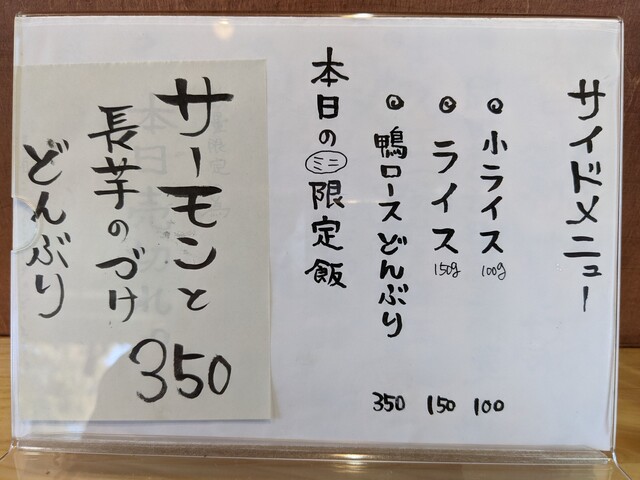 サイドメニュー
◎小ライス 100g 100
◎ライス 150g 150
◎鴨ロースどんぶり 350
本日のミニ限定飯
サーモンと
長芋のづけ
どんぶり
350